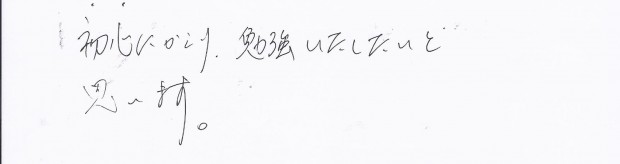 初心にかえり、勉強いたしたいと
思います。